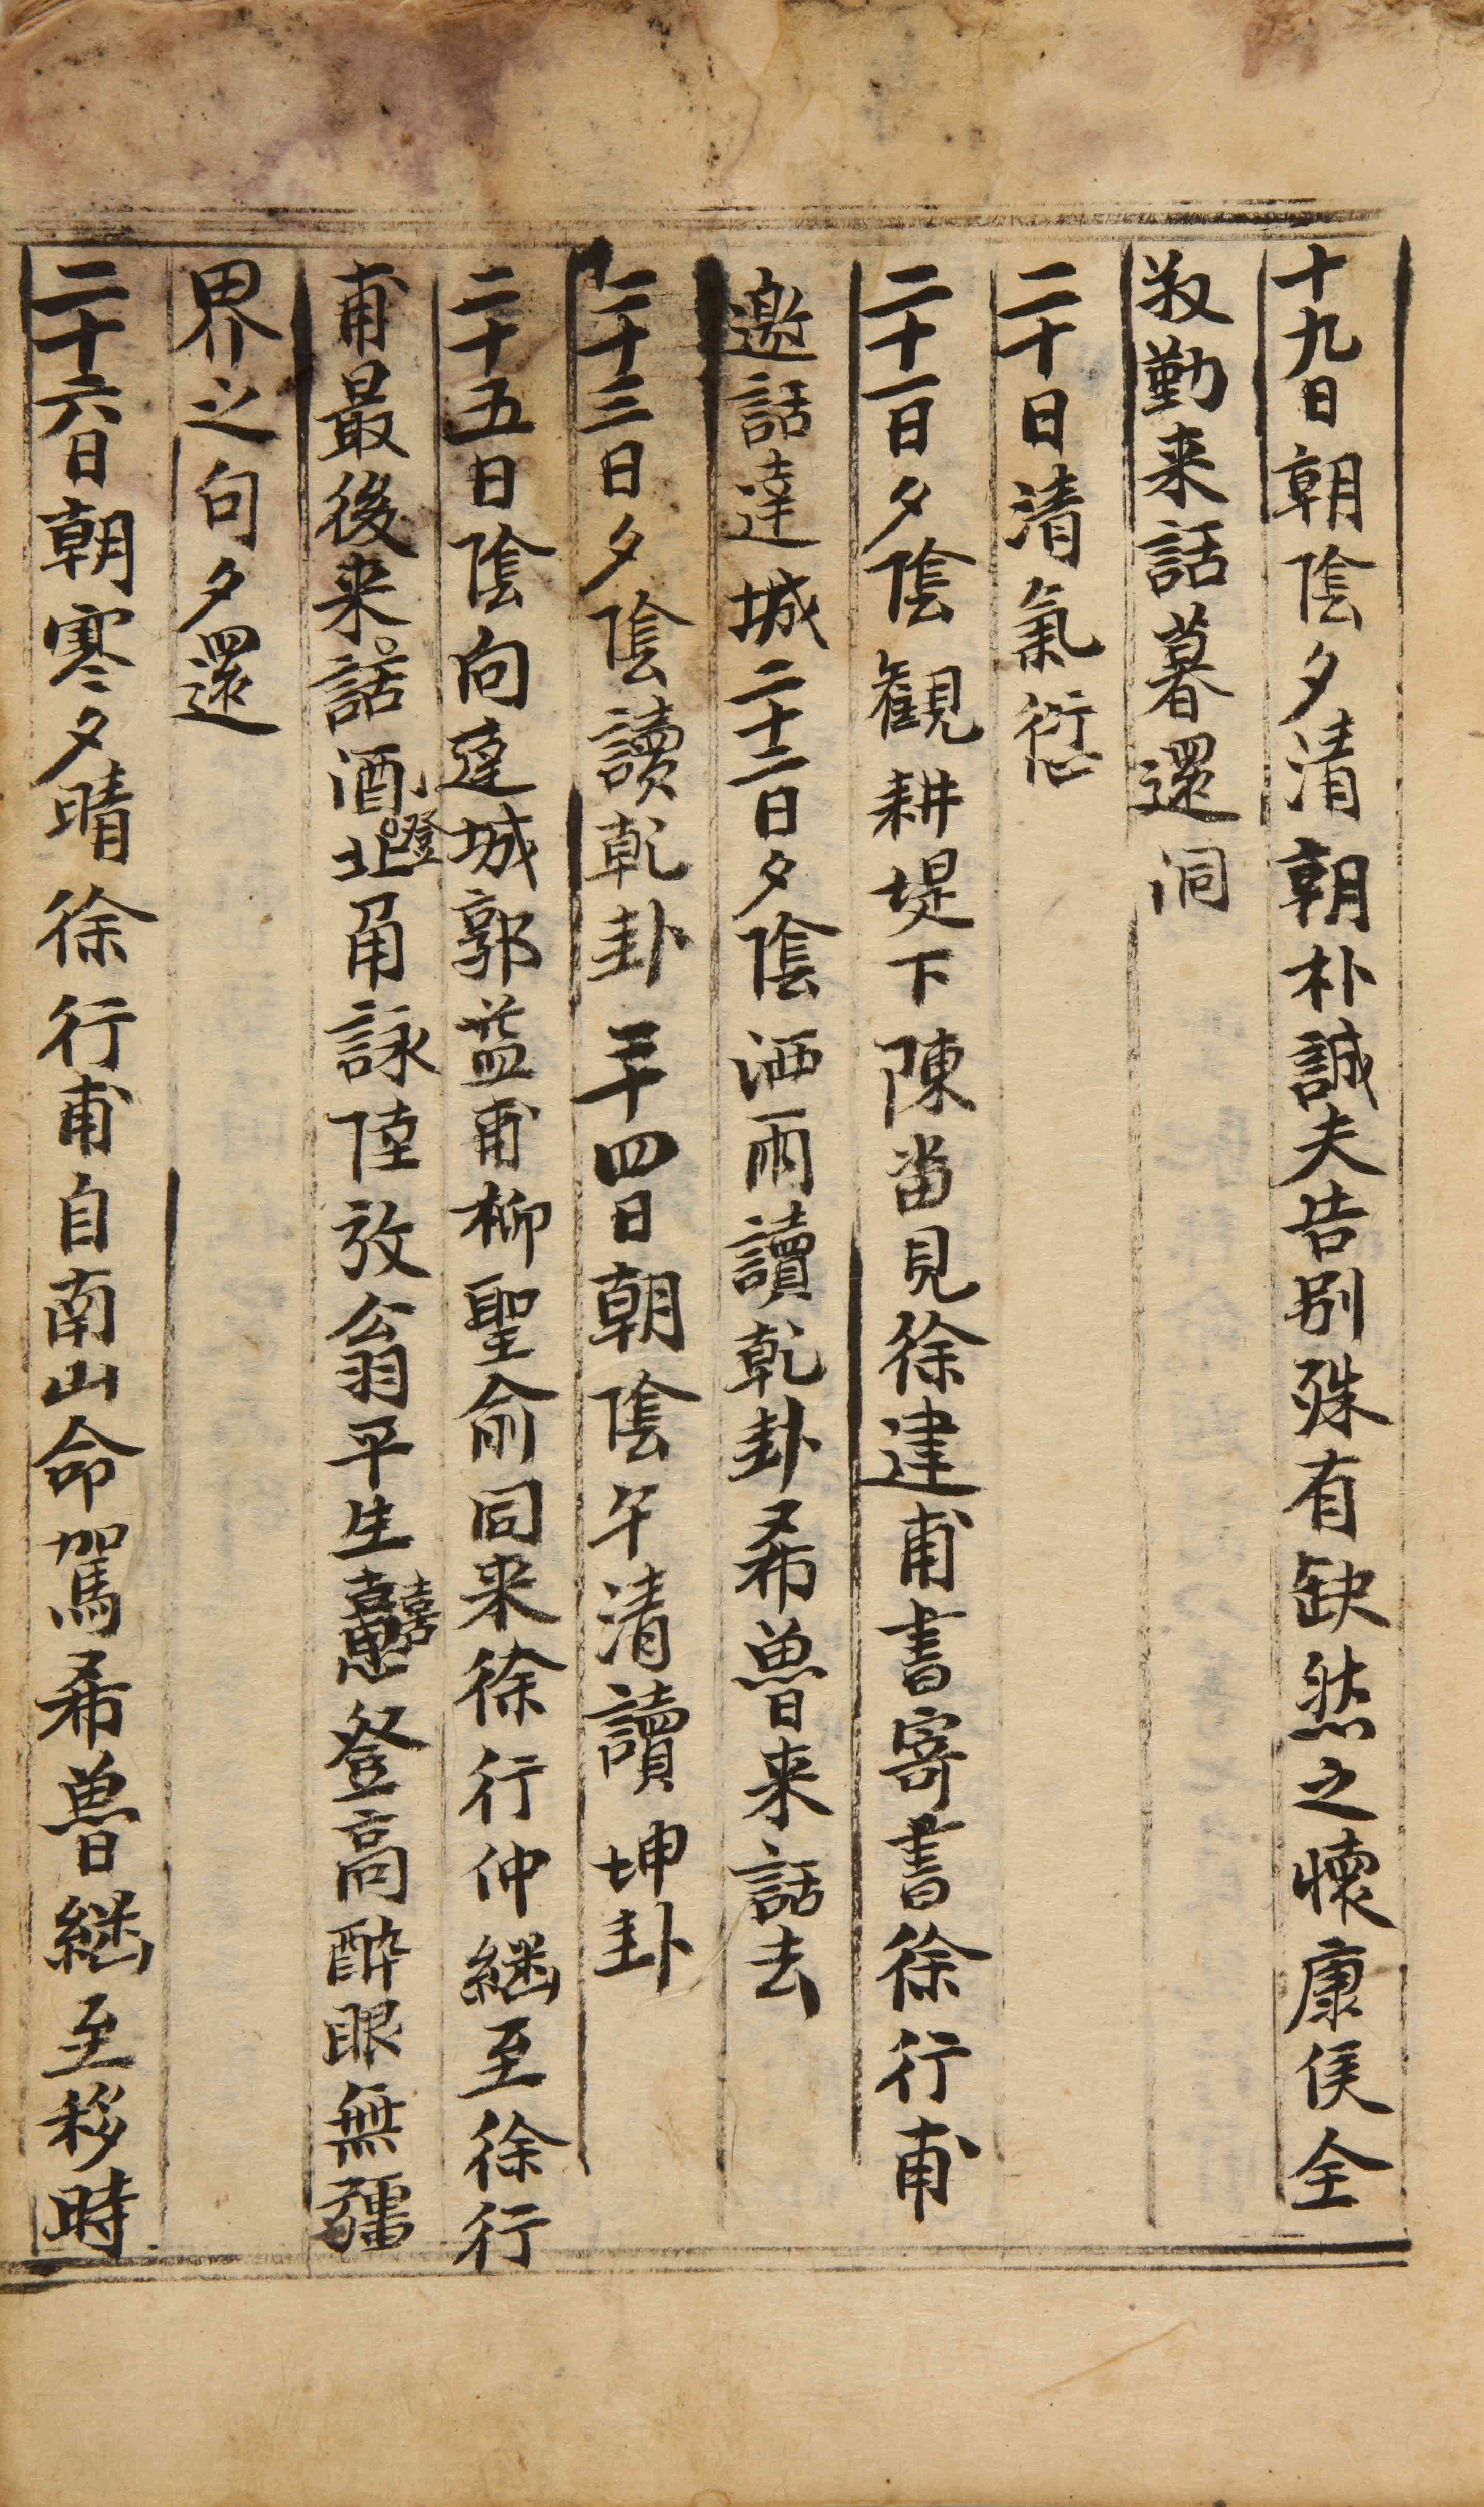 十九日朝陰夕清朝朴誠夫告別殊有缺然之懷康侯全
叔勤来話暮還洞
二十日清氣愆
二十一日夕陰観耕堤下陳畓見徐建甫書寄書徐行甫
邀話達城二十二日夕陰洒雨讀乾卦希魯来話去
二十三日夕陰讀乾卦二十四日朝陰午清讀坤卦
二十五日陰向達城郭益甫柳聖俞同来徐行仲継至徐行
甫最後来話酒北磴甬詠陸放翁平生憙登高酔眼無疆
喜
界之句夕還
二十六日朝寒夕晴徐行甫自南山命駕希魯継至移時